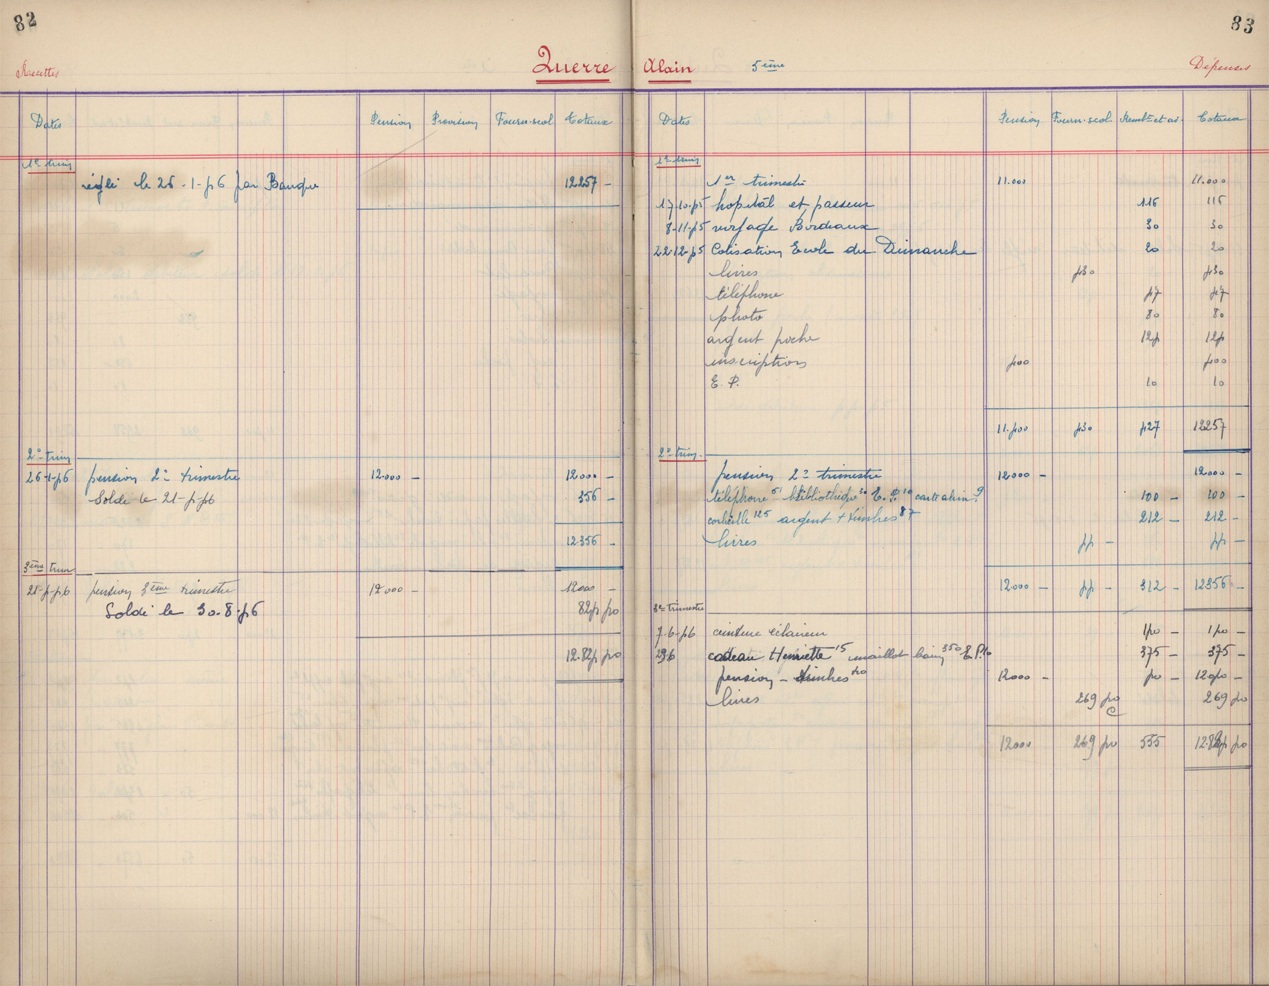 82
Recettes
Querre
Dates Pension Provision Fourn-scol Totaux
1er trim
réglé le 26-1-56 par Banque 12257 -
2e trim
26-1-56 pension 2e trimestre 12000 - 12000 -
Solde le 21-5-56 356 -
12356 -
3ème trim
21-5-56 pension 3ème trimestre 12000 - 12000 -
Solde le 30.8.56 825 50
12.825 50
83
Alain 5ème Dépenses
Dates Pension Fourn-scol Totaux
1er trim
1er trimestre 11.000 11.000
17-10-55 hopital et passeur 115 115
8-11-55 virfage Bordeaux 30 30
22-12-55 Cotisation Ecole du Dimanche 20 20
livres 530 530
téléphone 57 57
photo 80 80
argent poche 125 125
inscriptions 500 500
E. P. 10 10
11.500 530 527 12257
2e trim.
pension 2e trimestre 12000 - 12000 -
téléphone bibliothèque E.P. 10 100 - 100 -
corbeille 125 argent + timbres 87 212 - 212 -
livres 55 - 55 -
12000 - 55 - 312 - 12356 -
3e trimestre
7-6-56 ceinture éclaireur 150 - 150 -
296 cadeau Henriette 15 maillot bain 350 E.P. 10 375 - 375 -
pension - timbres 12000 - 50 -
livres 269 50 269 50
12000 269 50 555